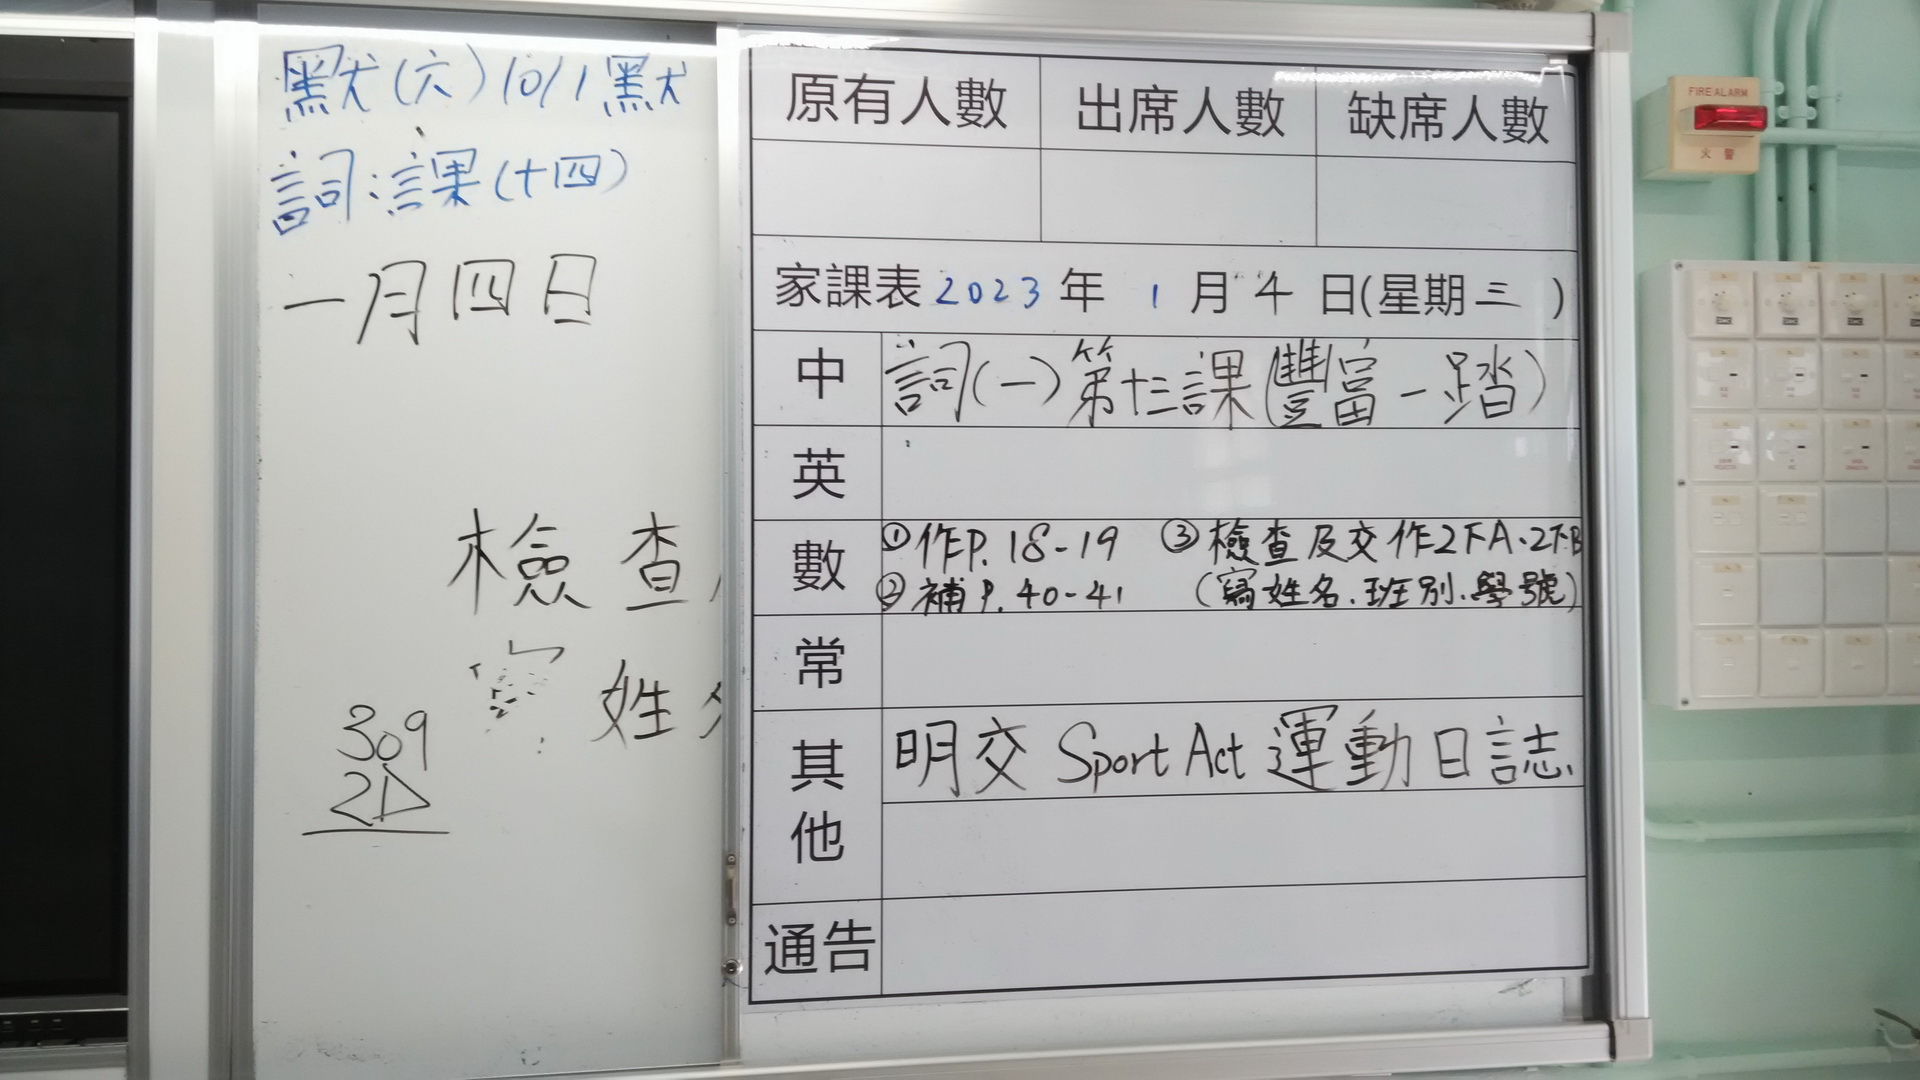 默(六)10/1默
詞:課(十四)
一月四日
檢查
姓
309
2D
原有人數 出席人數 缺席人數
家課表2023年1月4日(星期三)
中 詞(一)第十三課(豐富-踏)
英
數 ①作P.18-19 ③檢查及交作2下A、2下B
②補P.40-41 (寫姓名、班別、學號)
常
其他 明交Sport Act運動日誌
通告
FIRE ALARM
火警